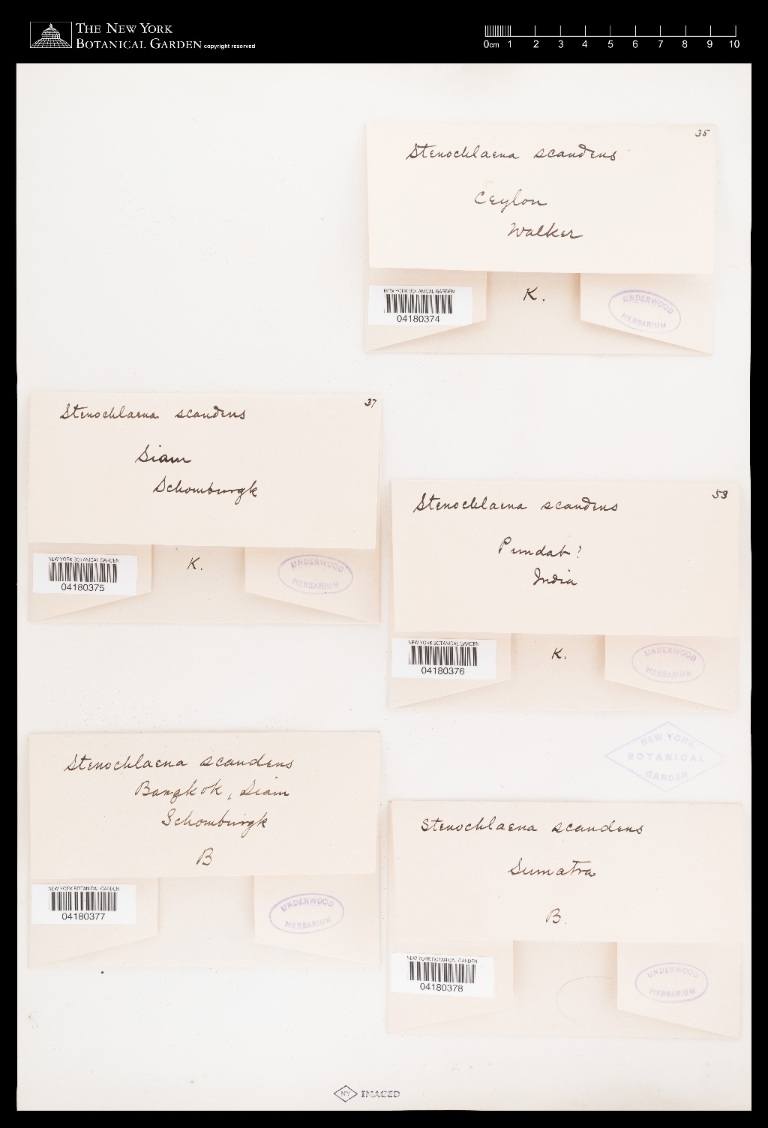 THE NEW YORK
BOTANICAL GARDEN copyright reserved
0cm 1 2 3 4 5 6 7 8 9 10
35
Stenochlaena scandens
Ceylon
Walker
NEW YORK BOTANICAL GARDEN
04180374
K.
UNDERWOOD
HERBARIUM
37
Stenochlaena scandens
Siam
Schomburgk
NEW YORK BOTANICAL GARDEN
04180375
K.
UNDERWOOD
HERBARIUM
53
Stenochlaena scandens
Pundab?
India
NEW YORK BOTANICAL GARDEN
04180376
K.
UNDERWOOD
HERBARIUM
NEW YORK
BOTANICAL
GARDEN
Stenochlaena scandens
Bangkok, Siam
Schomburgk
B
NEW YORK BOTANICAL GARDEN
04180377
UNDERWOOD
HERBARIUM
Stenochlaena scandens
Sumatra
B.
NEW YORK BOTANICAL GARDEN
04180378
UNDERWOOD
HERBARIUM
NY IMAGED